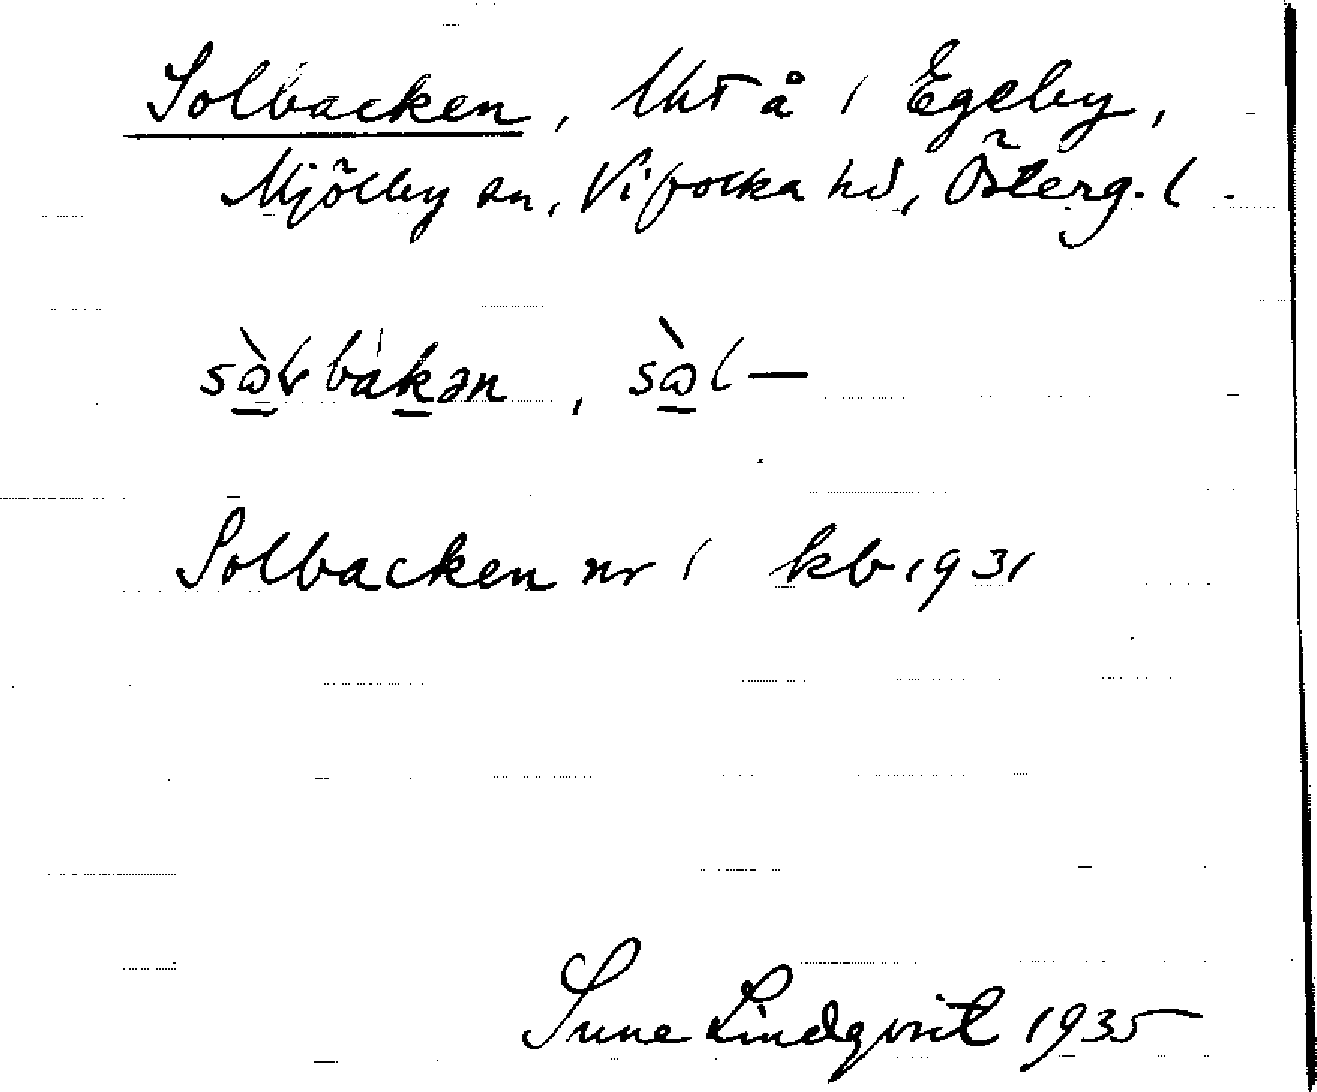 Solbacken, lht å 1 Egeby,
Mjölby sn, Vifolka hd, Österg. l.
Solbacken nr 1 kb 1931
Sune Lindqvist 1935